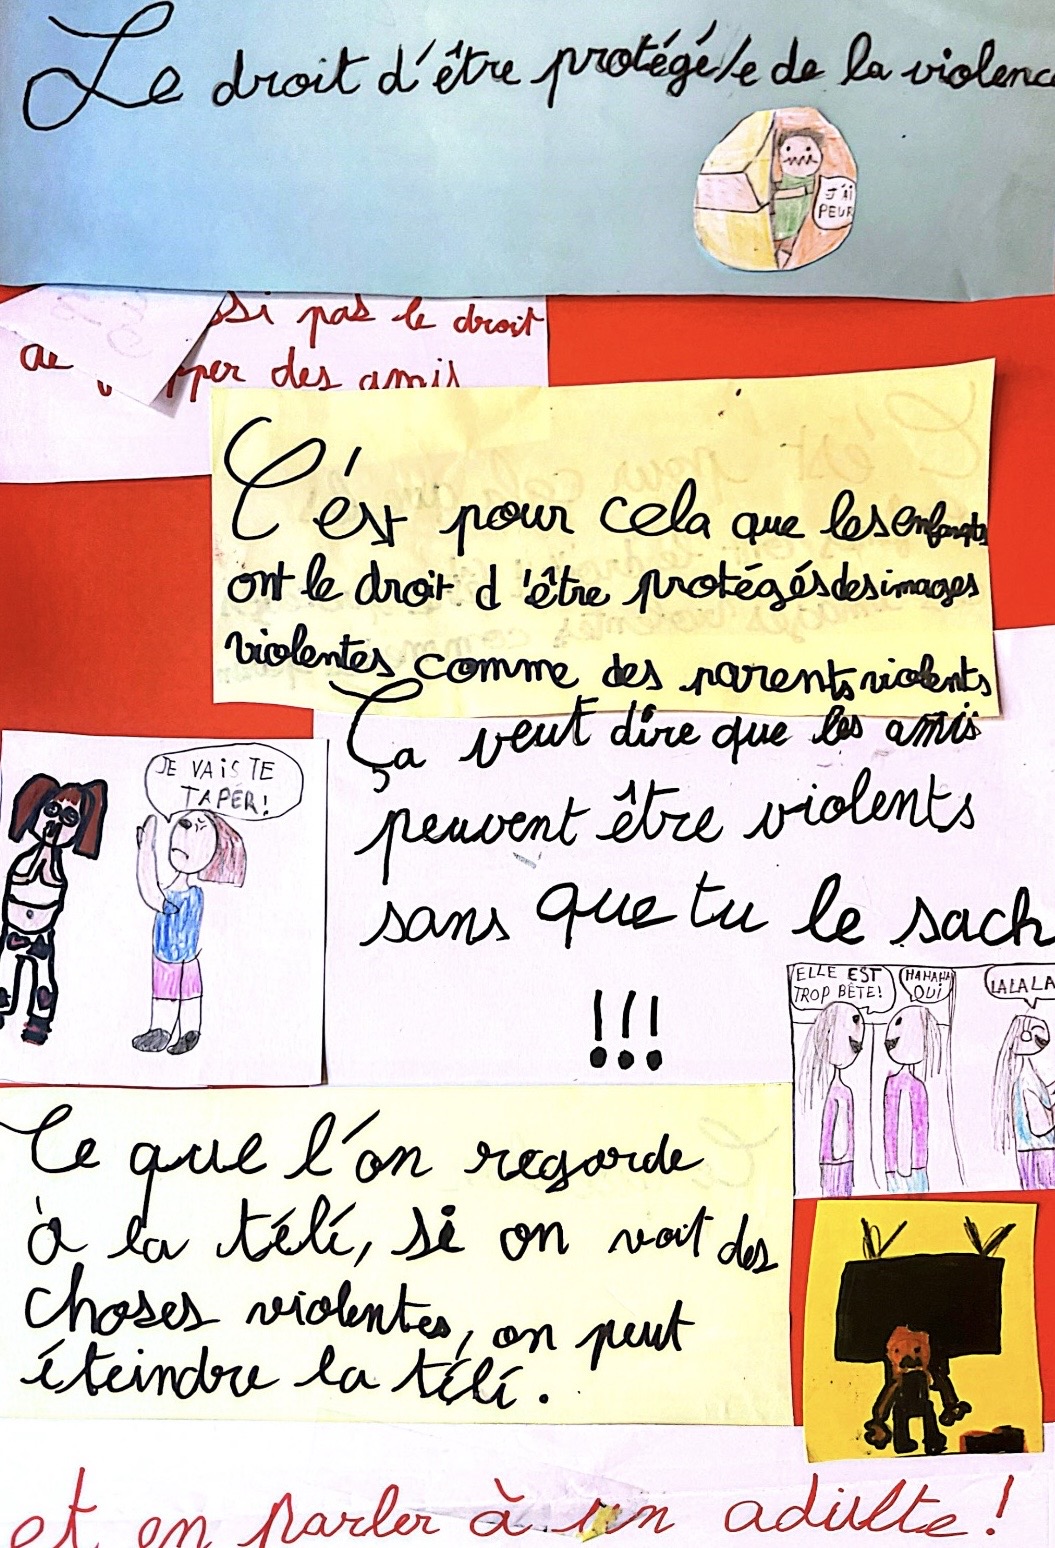 Le droit d'être protégé/e de la violenc
J'AI
PEUR
ssi pas le droit
des amis
C'est pour cela que les enfants
ont le droit d'être protégés des images
violentes comme des parents violents
Ça veut dire que les amis
peuvent être violents
sans que tu le sach
!!!
JE VAIS TE
TAPER!
ELLE EST
TROP BÊTE!
HAHAHA
OUI
LALALA
Ce que l'on regarde
à la télé, si on voit des
choses violentes, on peut
éteindre la télé.
et en parler à un adulte!